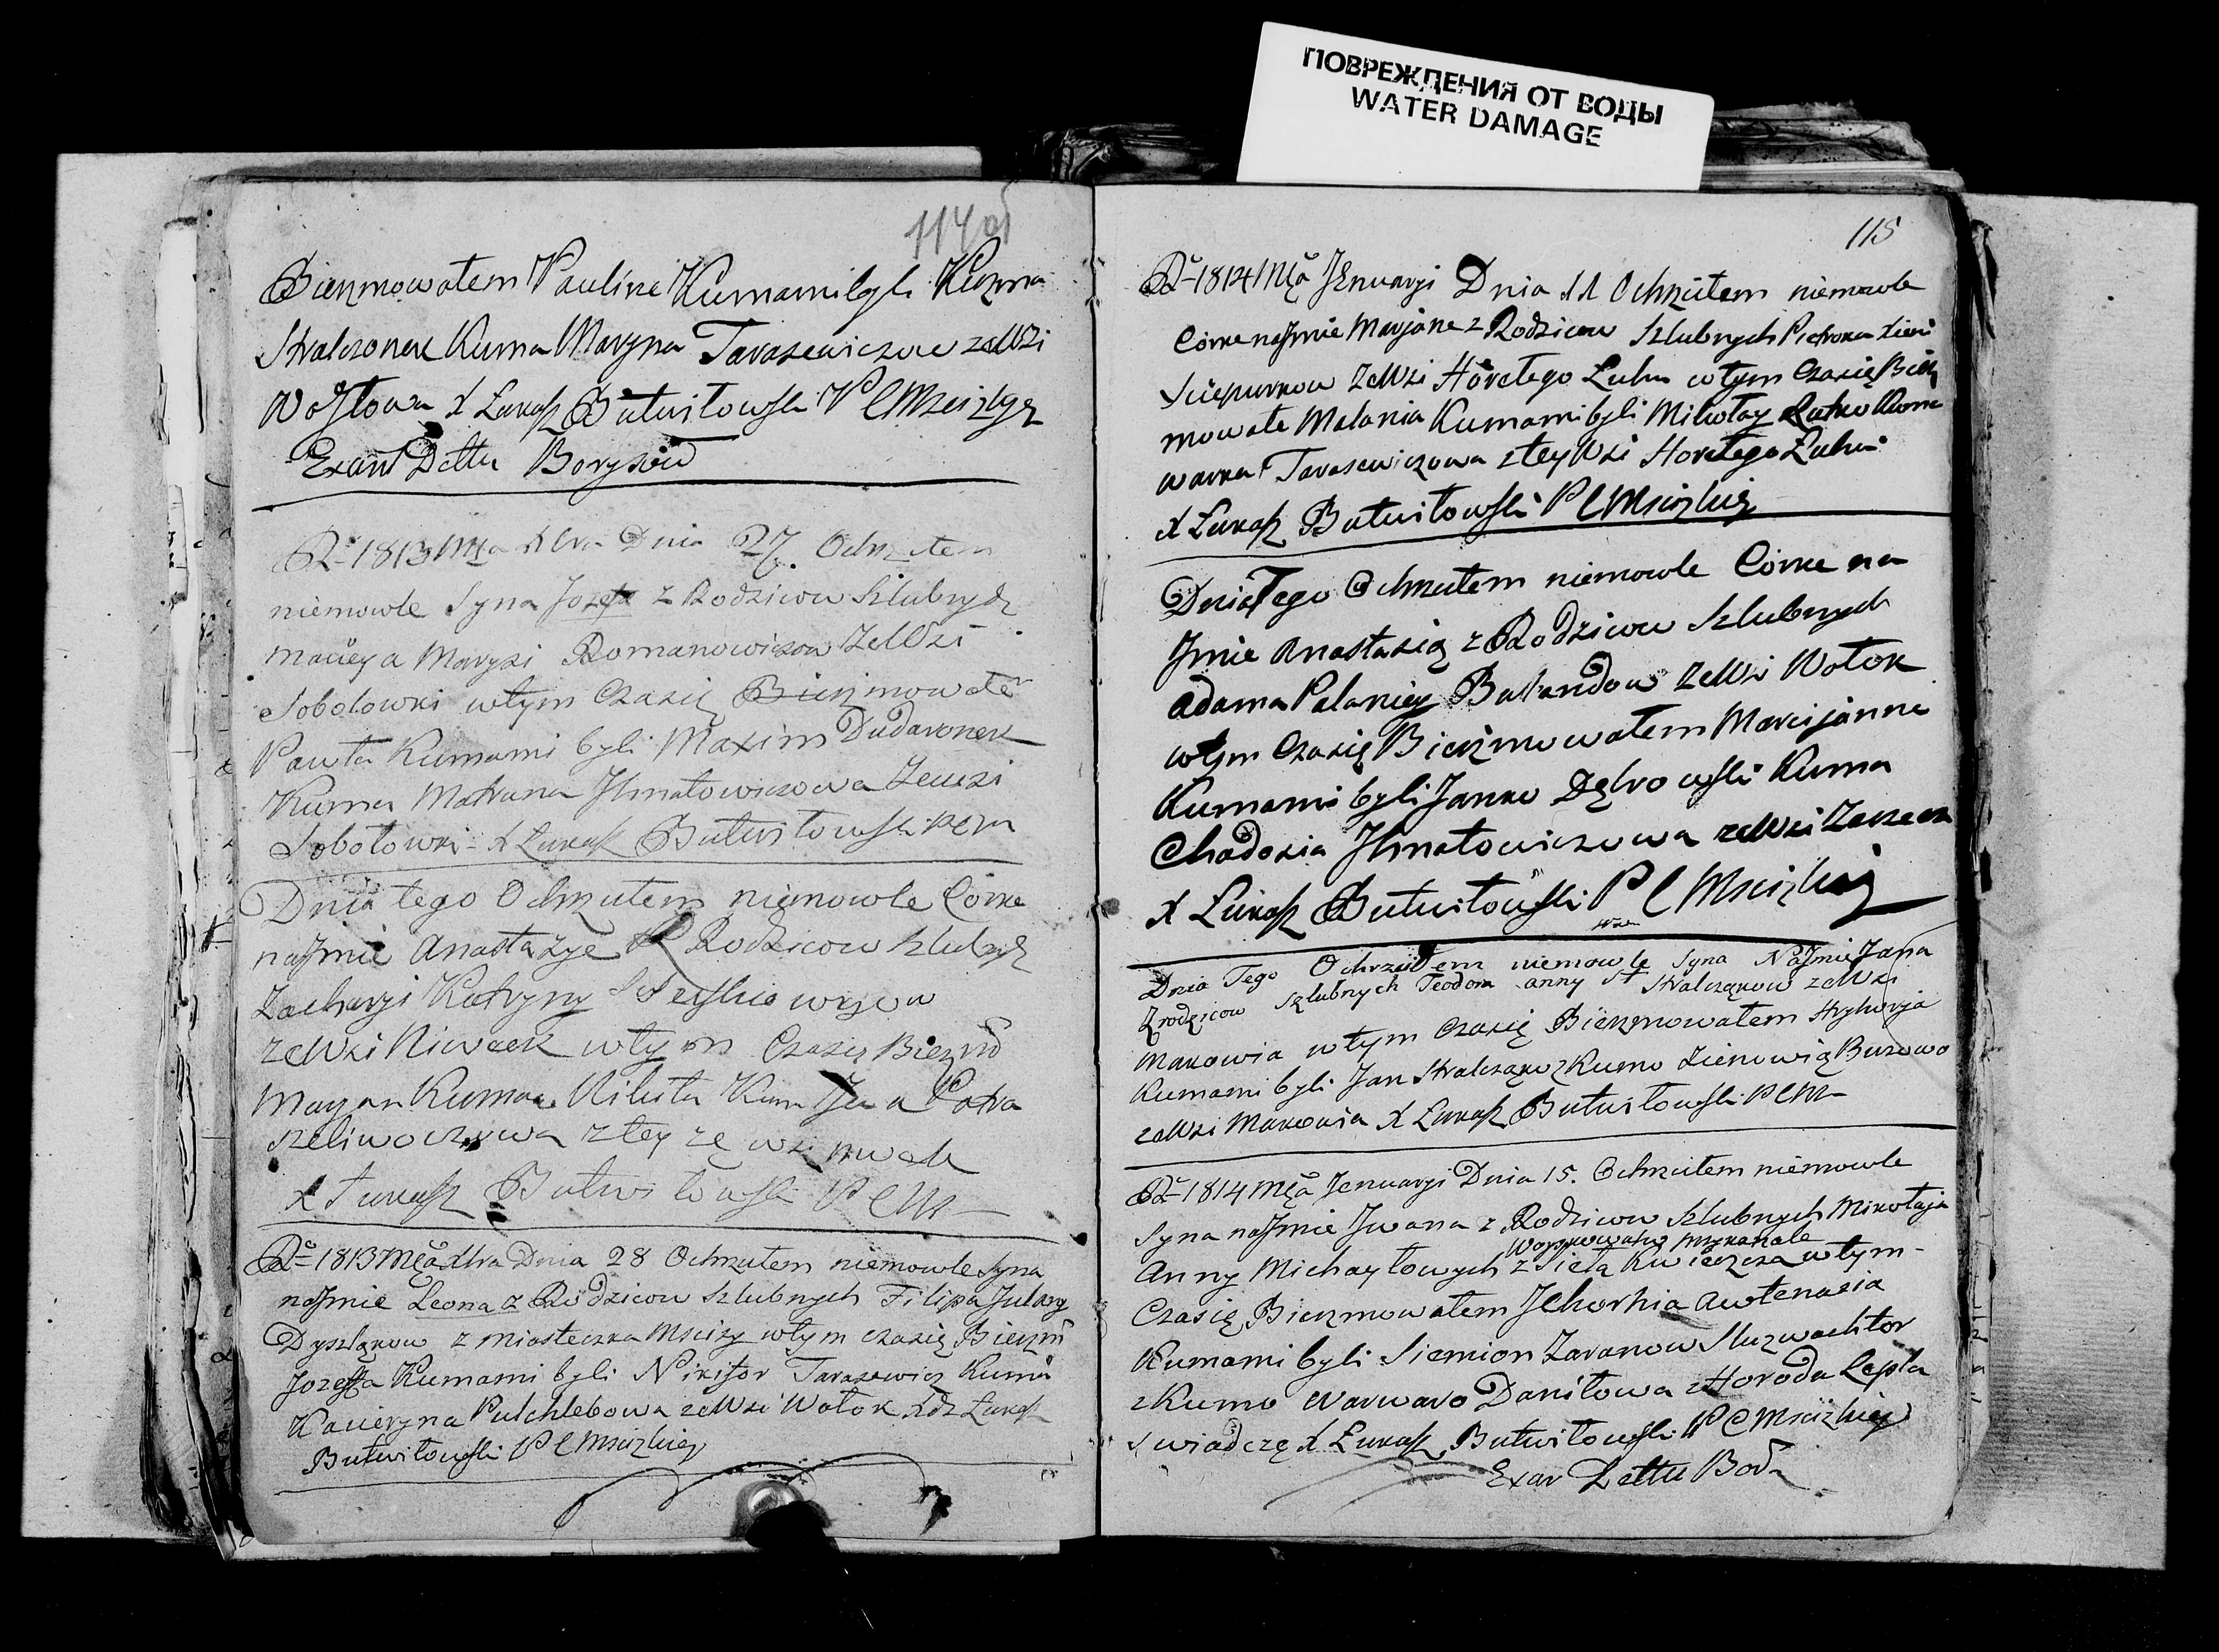 ПОВРЕЖДЕНИЯ ОТ ВОДЫ
WATER DAMAGE
114 об
Bierzmowałem Pauline Kumami byli Kuzma
Stralczonek Kuma Maryna Tarasewiczowa zeWsi
Wostowa X Łukasz Butwiłowski P C Mscizkiey
Exam Dettu Borysow
R 1813 Mca Xbra Dnia 27. Ochrzcilem
niemowle Syna Jozefa z Rodzicow Szlubnych
Macieya Marysi Romanowiczow zeWsi
Sobolowki wtym Czasię Bierzmowałe
Pawła Kumami byli Maxim Dudaronek
Kuma Matruna Ihnatowiczowa zewsi
Sobołowki X Łukasz Butwiłowski P C M
Dnia tego Ochrzcutem niemowle Corke
na Jmie Anastazye z Rodzicow Szlubnych
Zacharyi Katryny
zeWsi Niwek wtym Czasię Bierzm
Kuma Nikita Kum
szeliwoczowa z tey zę wsi niwek
X Łukasz Butwiłowski P C M
R 1813 Mca Xbra Dnia 28 Ochrzcutem niemowle Syna
na Jmie Leona z Rodzicow Szlubnych Filipa Julany
Dyszląkow z Miasteczka Mscizy wtym czasię Bierzm
Jozeffa Kumami byli Nikifor Tarasewicz Kuma
Kacieryna Putchlebowa zeWsi Wołok Xdz Łukasz
Butwiłowski P C Mscizkiey
115
R 1814 Mca Jenuaryi Dnia 11 Ochrzcutem niemowle
Corke na Jmie Marjane z Rodzicow Szlubnych Pietroka Xieni
Sciepurkow zeWsi Horełego Luhu wtym Czasię Bierz
mowałe Malania Kumami byli Mikołay Ratko Kuma
warka Tarasewiczowa z tey Wsi Horełego Luhu
X Łukasz Butwiłowski P C Mscizkiey
Dnia Tego Ochrzcutem niemowle Corke na
Jmie Anastasią z Rodzicow Szlubnych
Adama Pałaniey Bałandow zeWsi Wołok
wtym Czasię Bierzmowałem Marcijanne
Kumami byli Janko Dębrowski Kuma
Chadosia Ihnatowiczowa zeWsi Zarzecza
X Łukasz Butwiłowski P C Mscizkiey
Dnia Tego Ochrzcilem niemowle Syna Na Jmie Jana
Z rodzicow Szlubnych Teodora Anny St Stralcząkow zeWsi
Makowia wtym Czasię Bierzmowałem Hryhorja
Kumami byli Jan Stralcząk z Kumo Zienowią Buzowo
zeWsi Makowia X Łukasz Butwiłowski P C M
R 1814 Mca Jenuaryi Dnia 15. Ochrzcutem niemowle
Syna na Jmie Jwana z Rodzicow Szlubnych Mikołaja
Anny Michayłowych z Sieła Kwieczcza wtym
Czasię Bierzmowałem Jehorhia Awtenasia
Kumami byli Siemion Zaranow Sluzwachtor
z Kumo Warwaro Daniłowa z Horoda Lepla
Swiadczę X Łukasz Butwiłowski P C Mscizkiey
Exav Dettu Bor